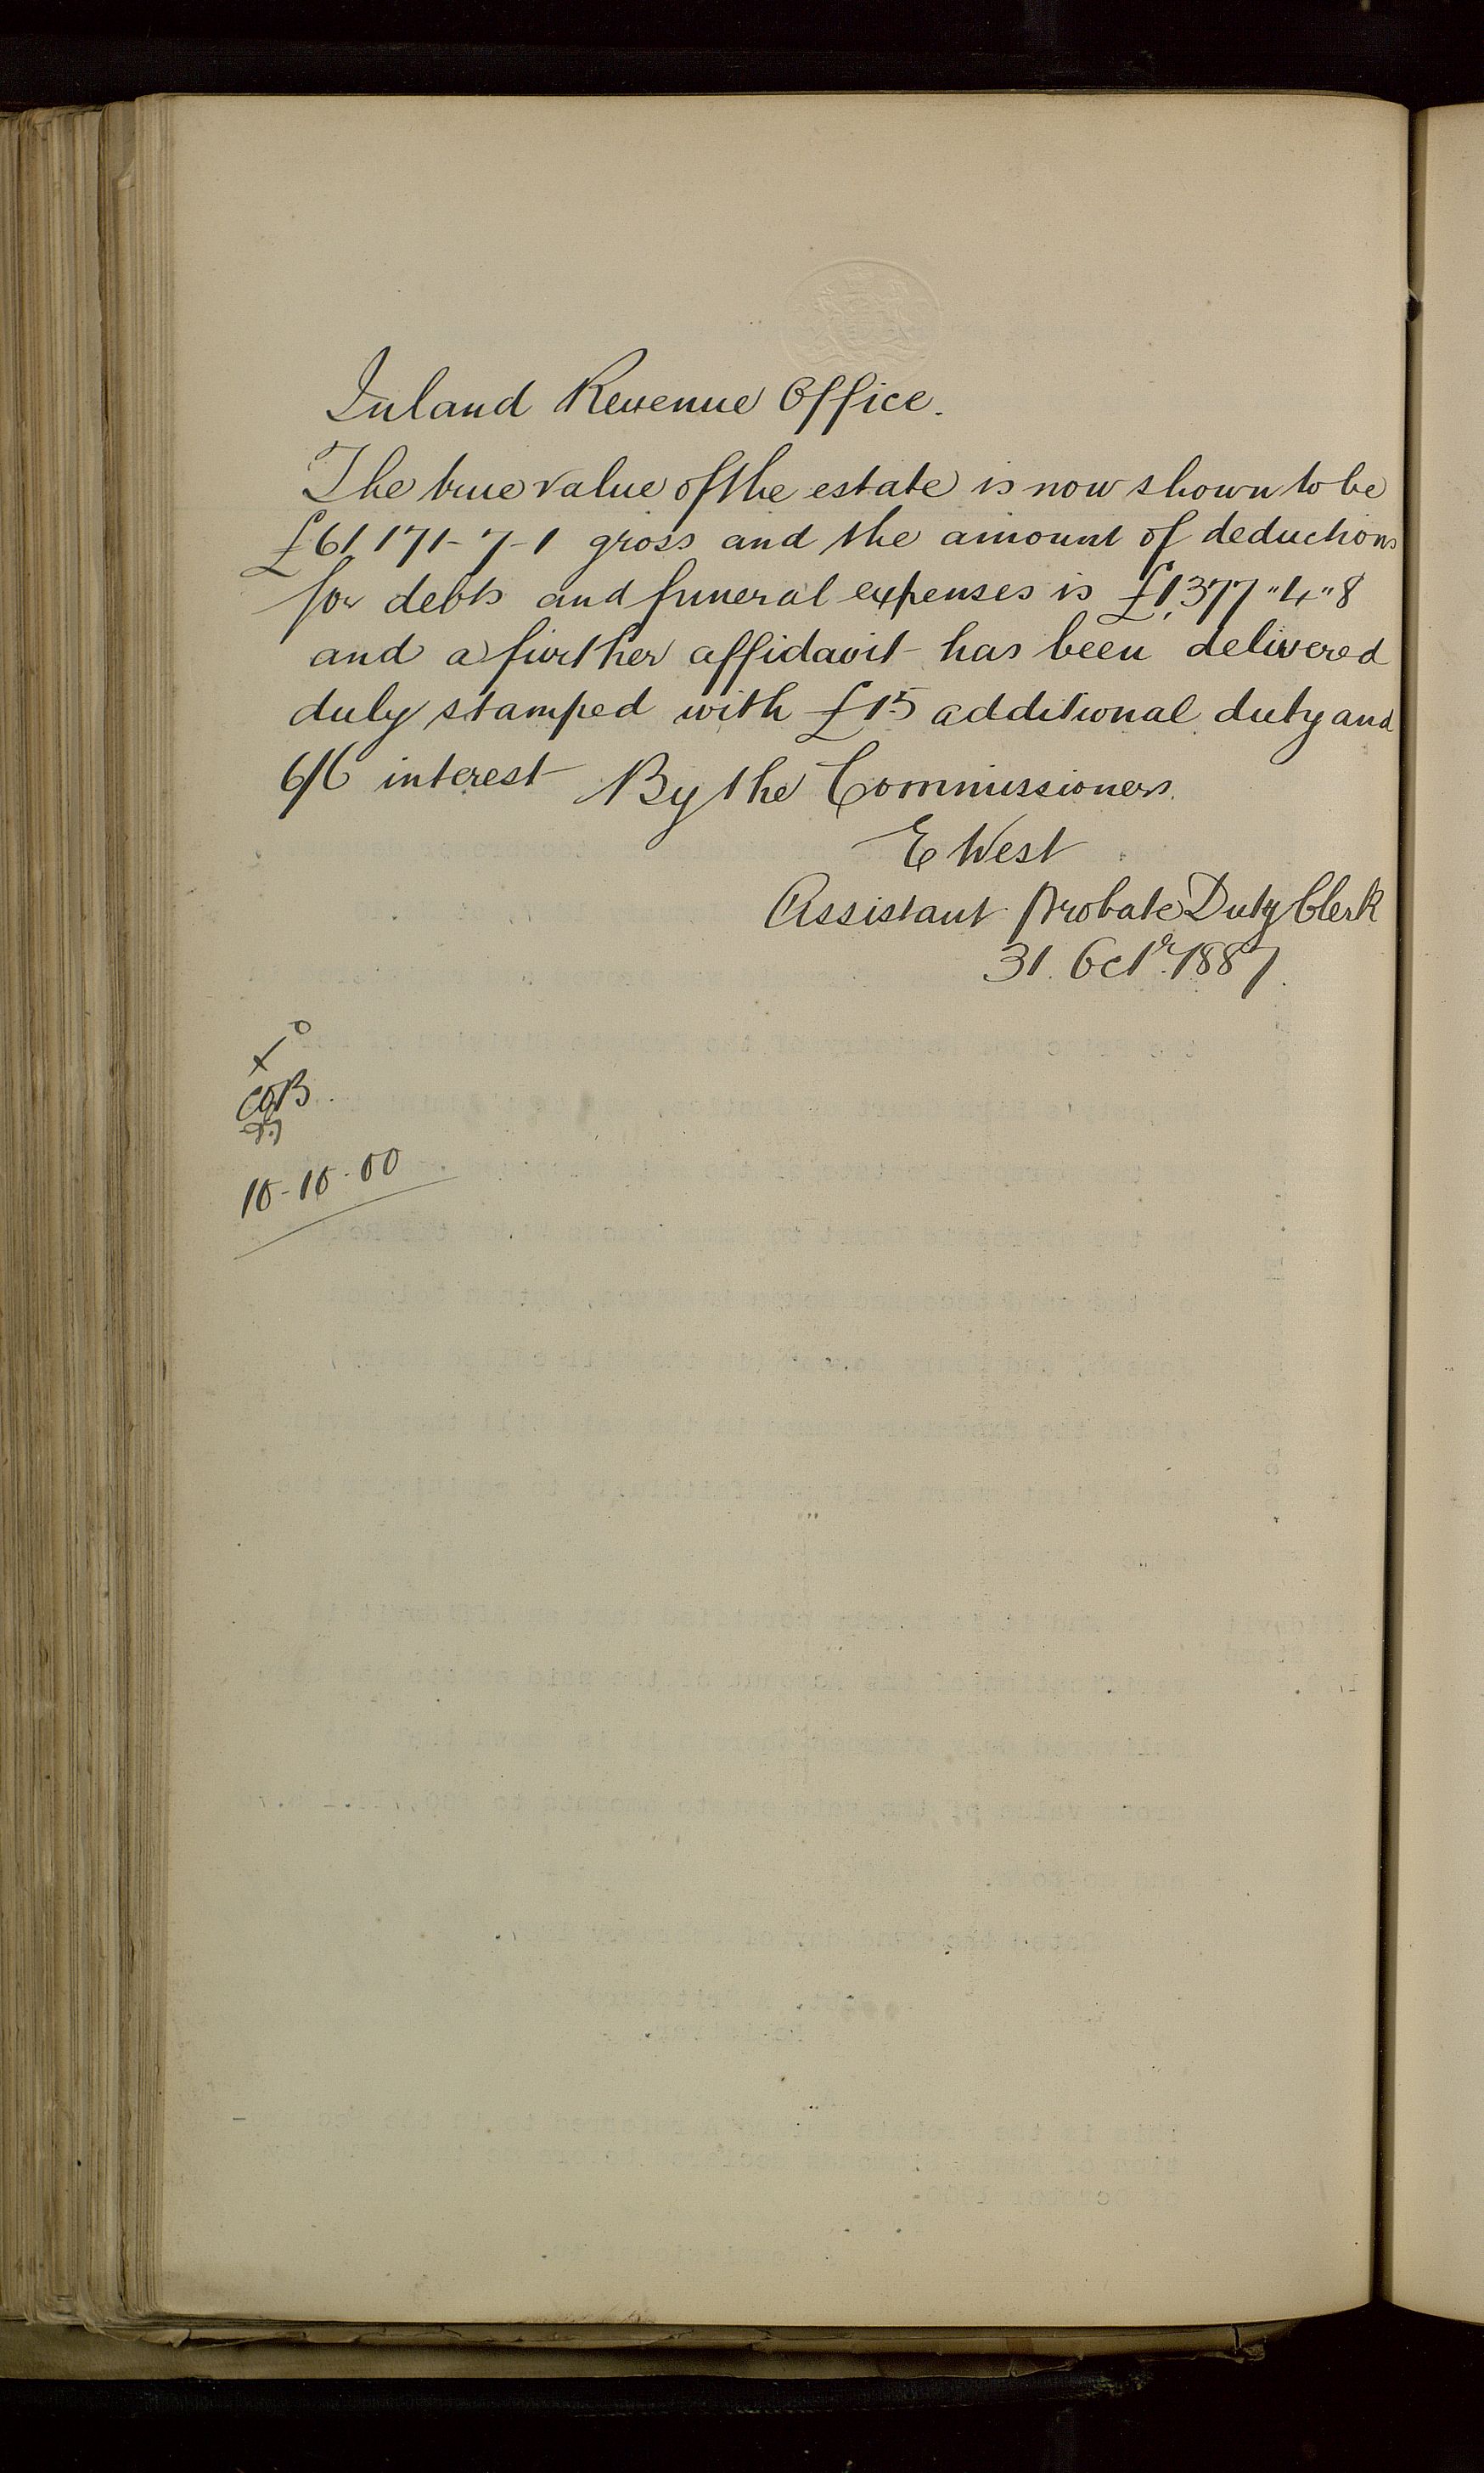 Inland Revenue Office.
The true value of the estate is now shown to be
£61171-7-1 gross and the amount of deductions
for debts and funeral expenses is £1,377"4"8
and a further affidavit has been delivered
duly stamped with £15 additional duty and
6/6 interest By the Commissioners.
E West
Assistant Probate Duty Clerk
31. Octr. 1887.
10-10-00